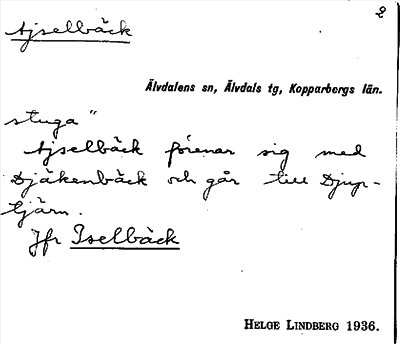 2
Ajselbäck
Älvdalens sn, Älvdals tg, Kopparbergs län.
stuga"
Ajselbäck förenar sig med
Djäkenbäck och går till Djup-
tjärn.
Jfr Iselbäck
HELGE LINDBERG 1936.